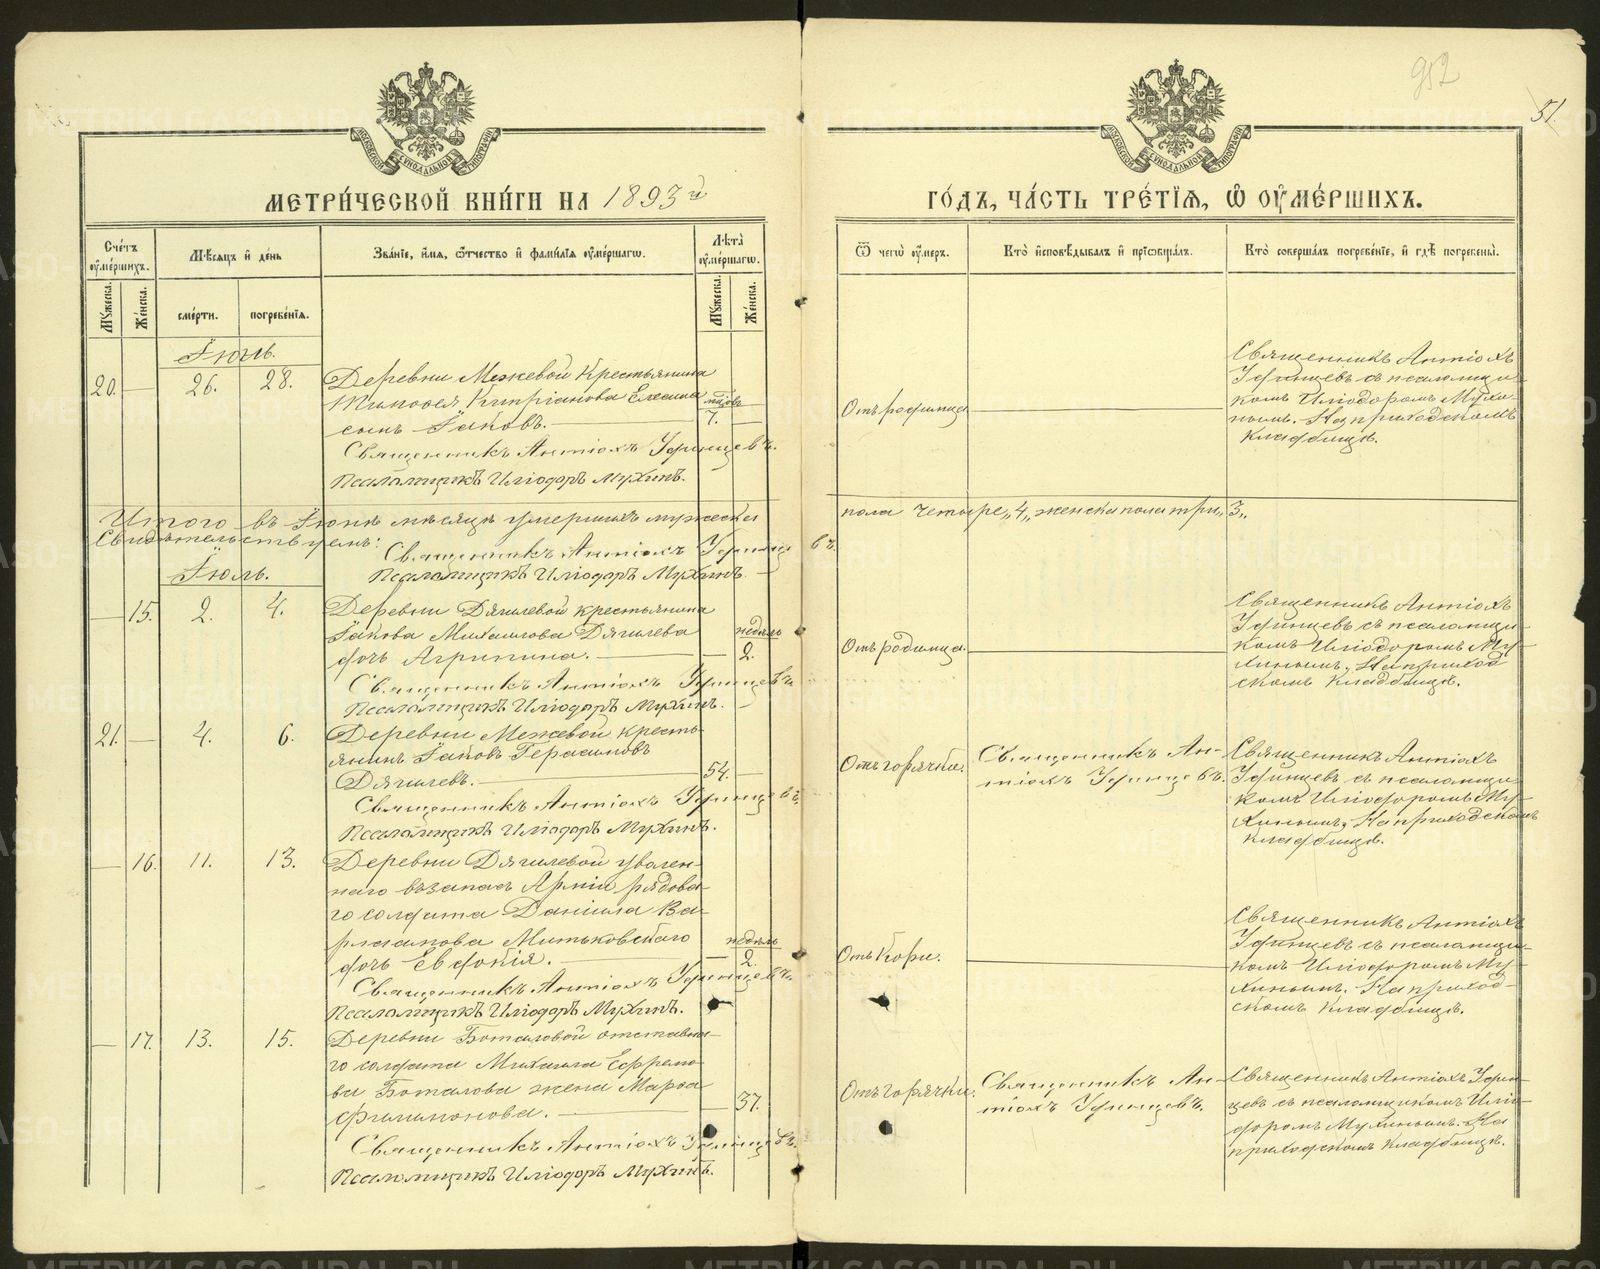 952
51.
МЕТРИ́ЧЕСКОЙ КНИ́ГИ НА 1893й
ГО́ДЪ, ЧА́СТЬ ТРЕ́ТЇѦ, Ѡ҆ ОУ҆МЕ́РШИХЪ.
Сче́тъ оу҆ме́ршихъ.
Мѣ́сяцъ и҆ де́нь
Зва́нїе, и҆́мя, ѻ҆́тчество и҆ фами́лїя оу҆ме́ршагѡ.
Лѣ́та оу҆ме́ршагѡ.
Ѿ чегѡ̀ оу҆́меръ.
Кто̀ и҆сповѣ́дывалъ и҆ прїѡбща́лъ.
Кто̀ соверша́лъ погребе́нїе, и҆ гдѣ̀ погребены̀.
Мꙋ́жеска.
Же́нска.
сме́рти.
погребе́нїя.
Мꙋ́жеска.
Же́нска.
Іюль.
20. — 26. 28.
Деревни Межевой Крестьянина
Тимофея Кипріанова
сынъ Іаковъ.
7.
Священникъ Антіохъ Уфинцевъ.
Псаломщикъ Иліодоръ Мухинъ.
Отъ родимца
Священникъ Антіохъ
Уфинцевъ съ псаломщи-
комъ Иліодоромъ Мухи-
нымъ. На приходскомъ
кладбищѣ.
Итого въ Іюнѣ мѣсяцѣ умершихъ мужеска
пола четыре „4„ женска пола три „3„
Свидѣтельствуемъ:
Священникъ Антіохъ Уфинцевъ.
Псаломщикъ Иліодоръ Мухинъ.
Іюль.
— 15. 2. 4.
Деревни Дягилевой крестьянина
Іакова Михаилова Дягилева
дочь Агрипина.
недѣль
2.
Священникъ Антіохъ Уфинцевъ
Псаломщикъ Иліодоръ Мухинъ.
Отъ родимца.
Священникъ Антіохъ
Уфинцевъ съ псаломщи-
комъ Иліодоромъ Му-
хинымъ. На приход
скомъ кладбищѣ.
21. — 4. 6.
Деревни Межевой кресть-
янинъ Іаковъ Герасимовъ
Дягилевъ.
54.
Священникъ Антіохъ Уфинцевъ
Псаломщикъ Иліодоръ Мухинъ.
Отъ горячки.
Священникъ Ан-
тіохъ Уфинцевъ.
Священникъ Антіохъ
Уфинцевъ съ псаломщи
комъ Иліодоромъ Му-
хинымъ. На приходскомъ
кладбищѣ.
— 16. 11. 13.
Деревни Дягилевой уволен-
наго въ запасъ Арміи рядова-
го солдата Даніила Ва-
рлаамова Митьковскаго
дочь Евдокія.
недѣль
2.
Священникъ Антіохъ Уфинцевъ.
Псаломщикъ Иліодоръ Мухинъ.
Отъ Кори.
Священникъ Антіохъ
Уфинцевъ съ псаломщи-
комъ Иліодоромъ Му-
хинымъ. На приход-
скомъ кладбищѣ.
— 17. 13. 15.
Деревни Боталовой отставна-
го солдата Михаила Ефремо-
ва Боталова жена Марѳа
Филимонова.
37.
Священникъ Антіохъ Уфинцевъ.
Псаломщикъ Иліодоръ Мухинъ.
Отъ горячки.
Священникъ Ан-
тіохъ Уфинцевъ.
Священникъ Антіохъ Уфин-
цевъ съ псаломщикомъ Иліо-
доромъ Мухинымъ. На
приходскомъ кладбищѣ.